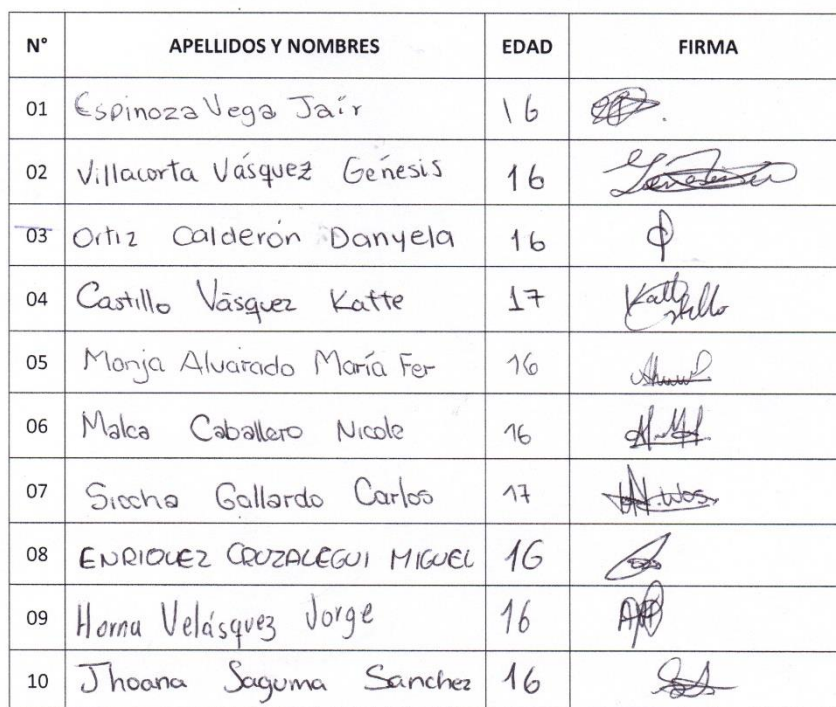 N° APELLIDOS Y NOMBRES EDAD FIRMA
01 Espinoza Vega Jaír 16
02 Villacorta Vásquez Génesis 16
03 Ortiz Calderón Danyela 16
04 Castillo Vásquez Katte 17
05 Monja Alvarado María Fer 16
06 Malca Caballero Nicole 16
07 Siccha Gallardo Carlos 17
08 ENRIQUEZ CRUZALEGUI MIGUEL 16
09 Horna Velásquez Jorge 16
10 Jhoana Saguma Sanchez 16